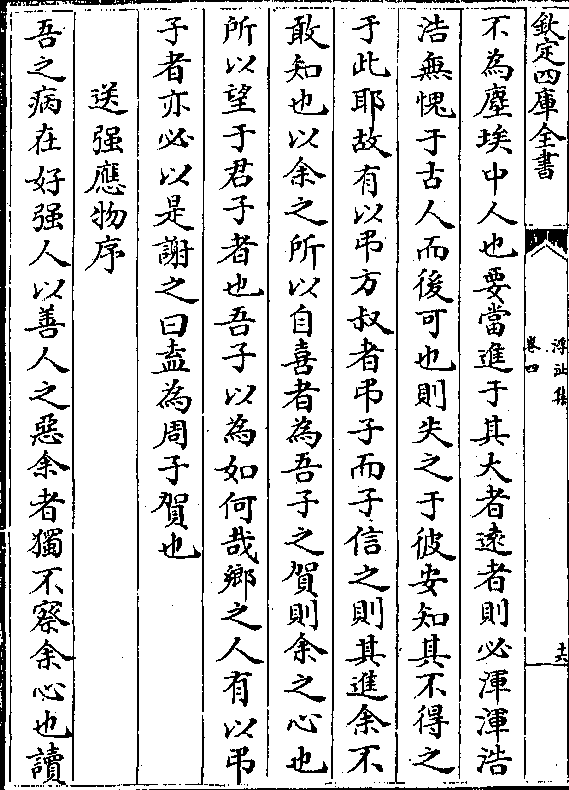 欽定四庫全書
浮沚集
卷四
十六
不為塵埃中人也要當進于其大者逺者則必渾渾浩
浩無愧于古人而後可也則失之于彼安知其不得之
于此耶故有以弔方叔者弔子而子信之則其進余不
敢知也以余之所以自喜者為吾子之賀則余之心也
所以望于君子者也吾子以為如何哉鄉之人有以弔
子者亦必以是謝之曰盍為周子賀也
送强應物序
吾之病在好强人以善人之惡余者獨不察余心也讀